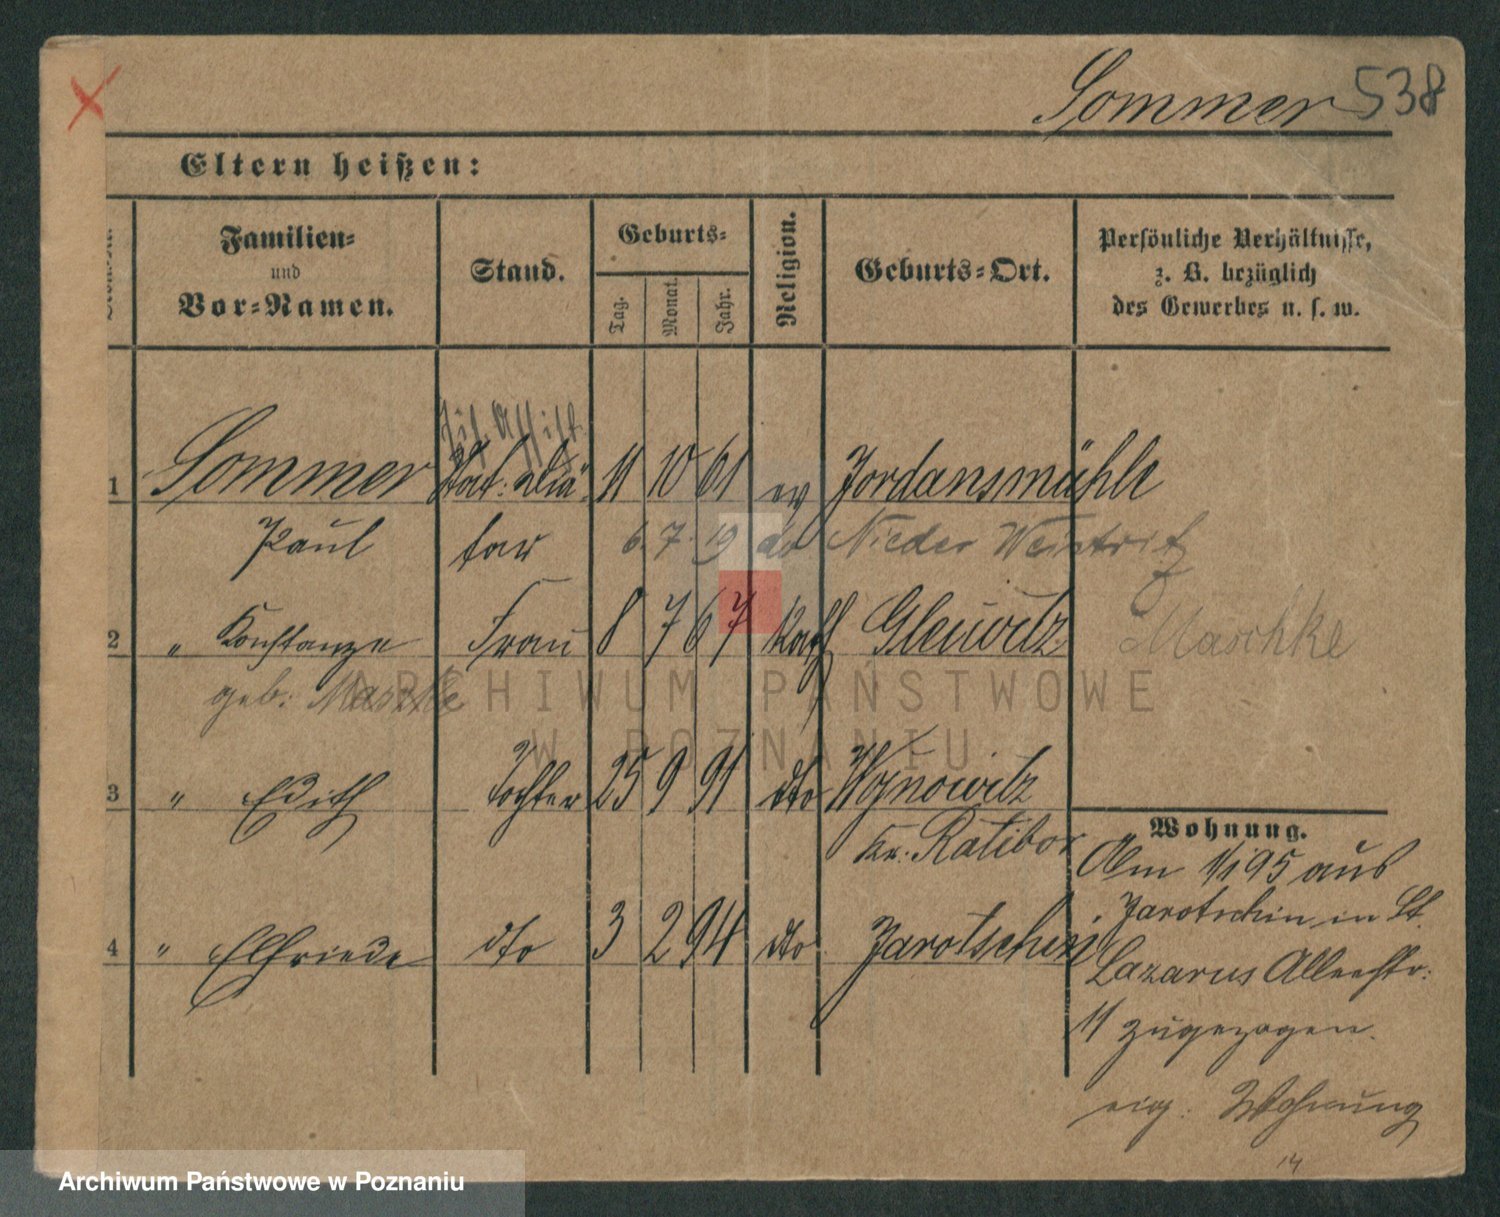 Sommer 538
Eltern heißen:
Familien-
und
Vor-Namen.
Stand.
Geburts-
Tag.
Monat.
Jahr.
Religion.
Geburts-Ort.
Persönliche Verhältnisse,
z. B. bezüglich
des Gewerbes u. s. w.
1 Sommer Stat: Diä 11 10 61 ev Jordansmühle
Paul tar 6. 7. 19 do Nieder Weistritz
2 " Konstanze Frau 8 7 67 Kath Gleiwitz Maschke
geb: Maschke
ARCHIWUM PAŃSTWOWE
W POZNANIU
3 " Edith Tochter 25 9 91 dto
Kr. Ratibor
4 " Elfriede dto 3 2 94 dto Jarotschin
Wohnung.
Am 1/1 95 aus
Jarotschin in St.
Lazarus Alleestr:
11 zugezogen.
eig: Wohnung
14
Archiwum Państwowe w Poznaniu